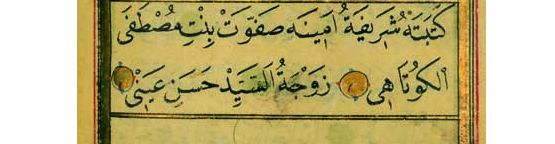 كَتَبَتْهُ شَرِيفَةُ اَمِينَه صَفْوَتْ بِنْتِ مُصْطَفَى
الكُوتَاهِى زَوْجَةُ السَّيِّدْ حَسَنِ عَيْنِى